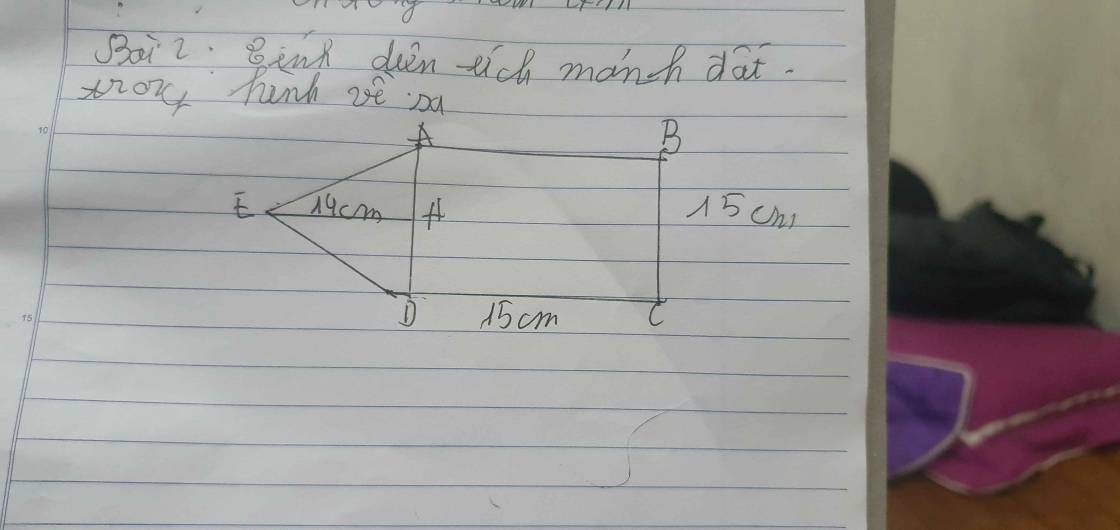 Bài 2: Tính diện tích mảnh đất
trong hình vẽ sa
10
A
B
E
14cm
H
15cm
D
15cm
C
15